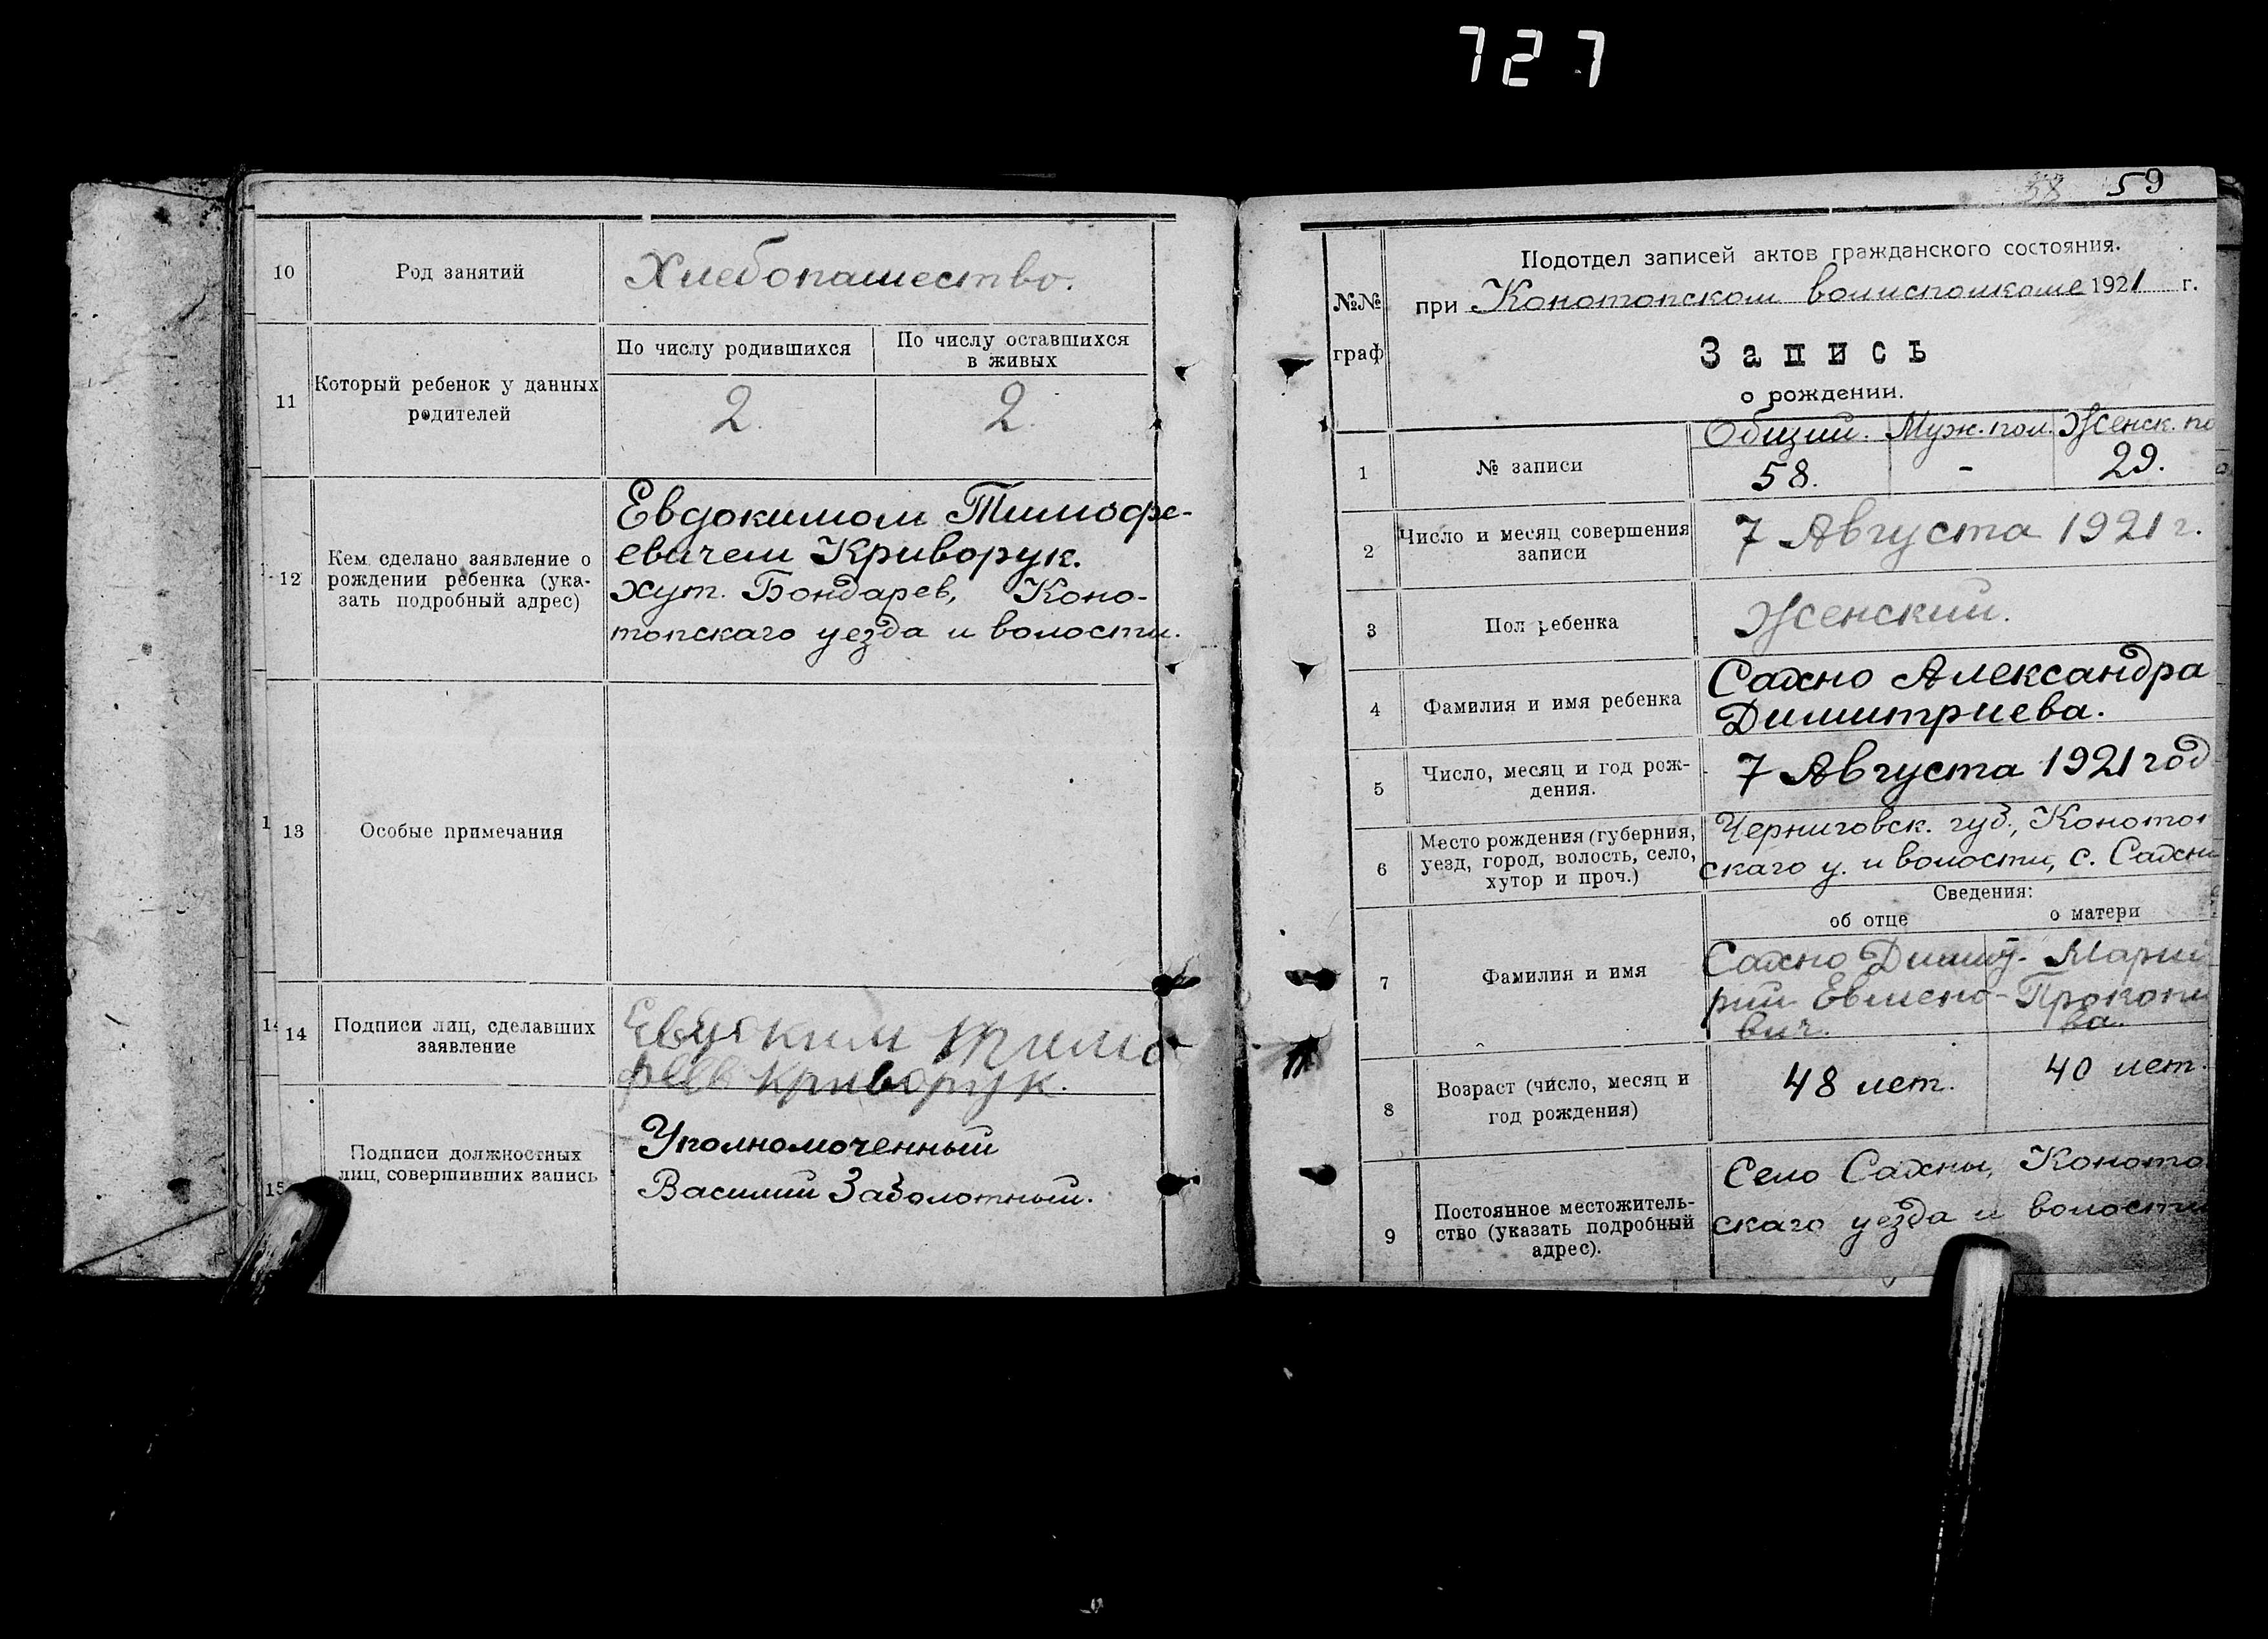 727
10
Род занятий
Хлебопашество.
11
Который ребенок у данных
родителей
По числу родившихся
По числу оставшихся
в живых
2.
2.
12
Кем сделано заявление о
рождении ребенка (ука-
зать подробный адрес)
Евдокимом Тимофе-
евичем Криворук.
хут. Бондарев, Коно-
топскаго уезда и волости.
1 13
Особые примечания
14
Подписи лиц, сделавших
заявление
Евдоким Тимо
феев Криворук.
15
Подписи должностных
лиц, совершивших запись
Уполномоченный
Василий Заболотный.
58 59
№№
граф
Подотдел записей актов гражданского состояния.
при Конотопском волисполкоме 1921 г.
Запись
о рождении.
1
№ записи
Общий. Муж. пол. Женск. по
58. - 29.
2
Число и месяц совершения
записи
7 Августа 1921 г.
3
Пол ребенка
Женский.
4
Фамилия и имя ребенка
Сахно Александра
Димитриева.
5
Число, месяц и год рож-
дения.
7 Августа 1921 год
6
Место рождения (губерния,
уезд, город, волость, село,
хутор и проч.)
Черниговск. губ., Коното
скаго у. и волости, с. Сахн
Сведения:
об отце
о матери
7
Фамилия и имя
Сахно Димит-
рий Евмено-
вич.
Мария
Прокопи
ва.
8
Возраст (число, месяц и
год рождения)
48 лет.
40 лет.
9
Постоянное местожитель-
ство (указать подробный
адрес).
Село Сахны, Коното
скаго уезда и волости